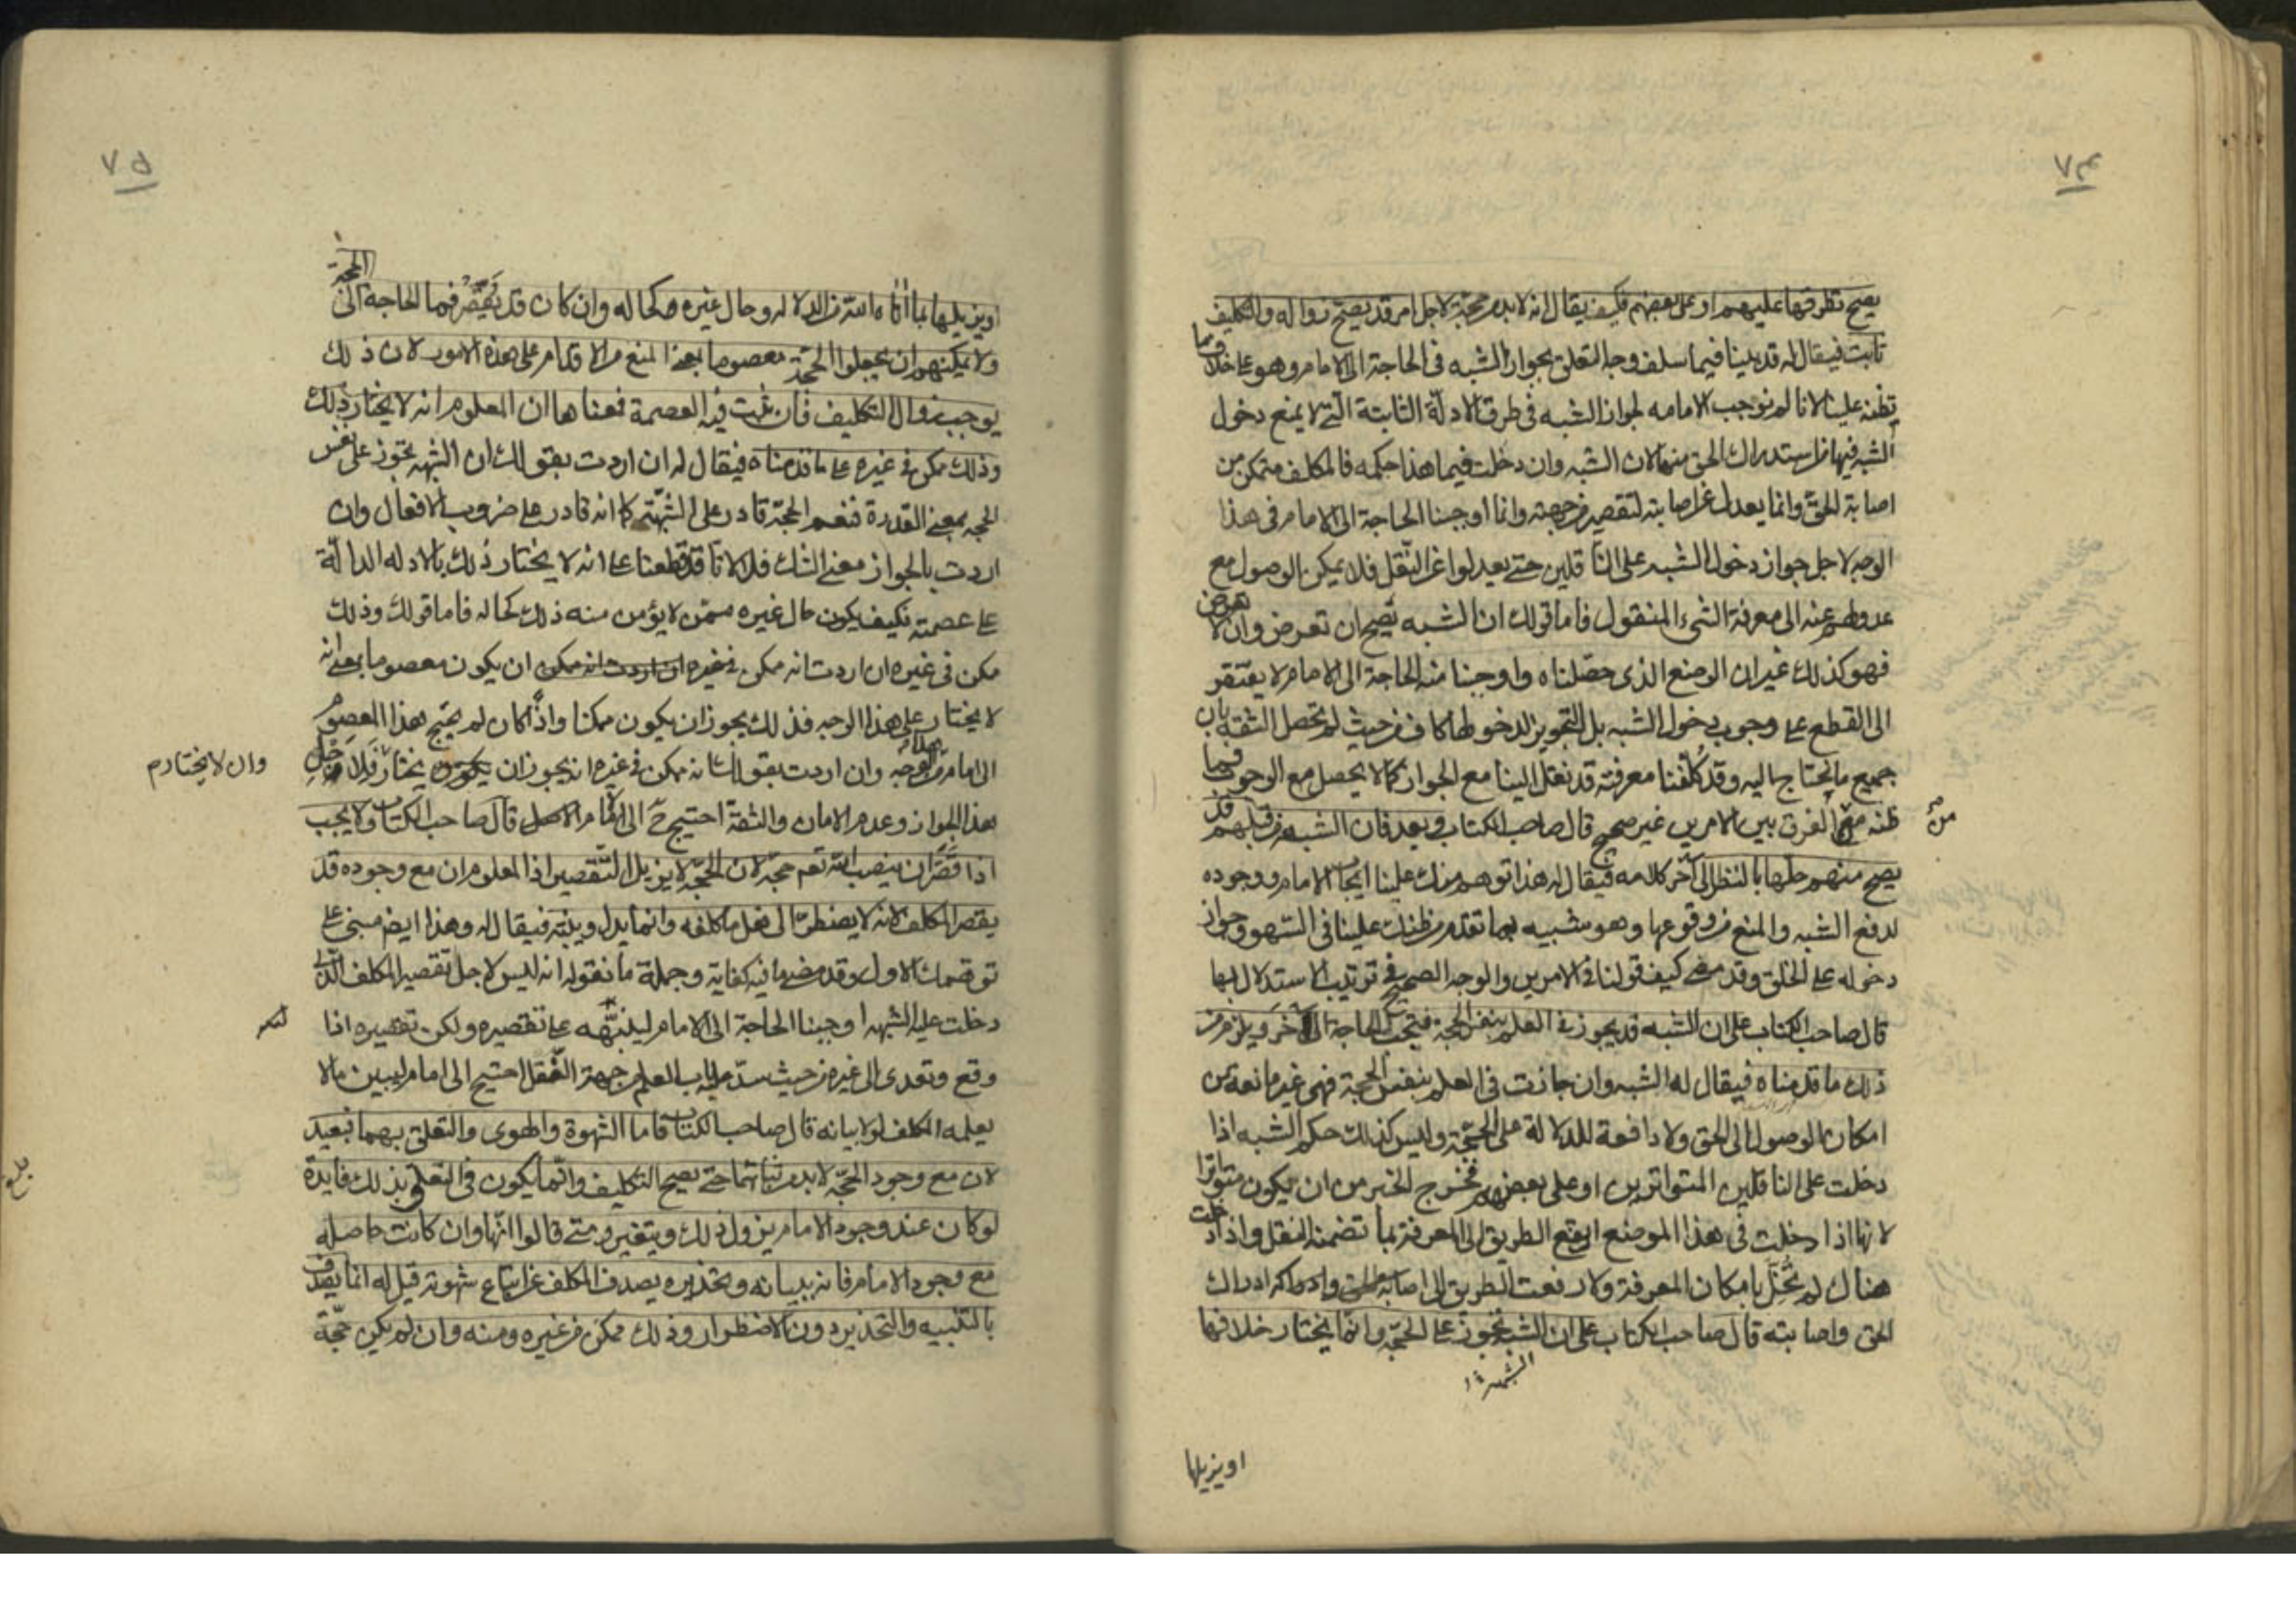 ٧٤
يصح تطرقها عليهم او على بعضهم فكيف يقال انه لا بد من حجة لاجل امر قد يصح زواله والتكليف
ثابت فيقال له قد بينا فيما سلف وجه التعلق بجواز الشبه في الحاجة الى الامام وهو على خلاف ما
تظنه علينا لانا لم نوجب الامامه لجواز الشبه في طرق الادلّة الثابتة الّتي لا يمنع دخول
الشبه فيها من استدراك الحق منها لان الشبه وان دخلت فيما هذا حكمه فالمكلف متمكن من
اصابة الحق وانما يعدل عن اصابته لتقصير من جهته وانما اوجبنا الحاجة الى الامام في هذا
الوجه لاجل جواز دخول الشبه على الناقلين حتى يعدلوا عن النّقل فلا يمكن الوصول مع
عدولهم عنه الى معرفة الشيء المنقول فاما قولك ان الشبه يصح ان تعرض وان لا تعرض
فهو كذلك غير ان الوضع الذي حصّلناه واوجبنا منه الحاجة الى الامام لا يفتقر
الى القطع على وجوب دخول الشبه بل التجويز لدخولها كاف من حيث لم تحصل الثقة بان
جميع ما نحتاج اليه وقد كُلّفنا معرفته قد نقل الينا مع الجواز كما لا يحصل مع الوجوب فما
ظنه من الفرق بين الامرين غير صحيح قال صاحب الكتاب وبعد فان الشبه من قبلهم قد
يصح منهم حلها بالنظر الى آخر كلامه فيقال له هذا توهم منك علينا ايجاب الامام ووجوده
لدفع الشبه والمنع من وقوعها وهو شبيه بما تقدم من ظنك علينا في السّهو وجواز
دخوله على الخلق وقد مضى كيف قولنا في الامرين والوجه الصحيح في ترتيب الاستدلال بهما
قال صاحب الكتاب على ان الشبه قد يجوز في العلم بنفس الحجة فيجب الحاجة الى آخر ويلزم من
ذلك ما قدمناه فيقال له الشبه وان جازت في العلم بنفس الحجة فهي غير مانعة من
امكان الوصول الى الحق ولا دافعة للدلالة على الحجّة وليس كذلك حكم الشبه اذا
دخلت على الناقلين المتواترين او على بعضهم فخرج الخبر من ان يكون متواترا
لانها اذا دخلت في هذا الموضع ارتفع الطريق الى المعرفة بما تضمنه النقل واذا دخلت
هناك لم تُخلّ بامكان المعرفة ولا رفعت الطريق الى اصابة ادراك
الحق واصابته قال صاحب الكتاب على ان الشبه تجوز على الحجّة وانما يختار خلافها
الشبهة
او يزيلها
٧٥
الحجة
او يزيلها بما اتاه الله من الدلاله وحال غيره كحاله وان كان قد يقصّر فما الحاجه الى
ولا يمكنهم ان يجعلوا الحجّة معصوما بمعنى المنع من الاقدام على هذه الامور لان ذلك
يوجب زوال التكليف فان ثبت فيه العصمة فمعناها ان المعلوم انه لا يختار ذلك
وذلك ممكن في غيره على ما قدمناه فيقال له ان اردت بقولك ان الشبهه تجوز على نفس
الحجه بمعنى القدرة فنعم الحجّة قادر على الشبهة كما انه قادر على ضروب الافعال وان
اردت بالجواز معنى الشك فلا لانّا قد قطعنا على انه لا يختار ذلك بالادله الدالّة
على عصمته فكيف يكون حال غيره ممّن لا يؤمن منه ذلك كحاله فاما قولك وذلك
ممكن في غيره ان اردت انه ممكن في غيره ان يكون معصوما بمعنى انه
لا يختار على هذا الوجه فذلك يجوز ان يكون ممكنا واذا كان لم يحتج هذا المعصوم
الى امام من هذا الوجه وان اردت بقولك انه ممكن في غيره انه يجوز ان يختار فلاجل
وان لا يختار
هذا الجواز وعدم الامان والثقة احتيج الى الامام قال صاحب الكتاب ولا يجب
اذا قَصّر ان ينصب الله تعم حجّه لان الحجّة لا يزيل التقصير اذ المعلوم ان مع وجوده قد
يقصر المكلف لانه لا يضطرّ الى فعل ما كلفه وانما يدل وينبّه فيقال له وهذا ايضا مبنيّ على
توهمك الاول وقد مضى ما فيه كفاية وجملة ما نقوله انه ليس لاجل تقصير المكلف الّذي
دخلت عليه الشبهه اوجبنا الحاجة الى الامام لينبّهه على تقصيره ولكن تقصيره اذا
وقع وتعدى الى غيره من حيث سدّ عليه باب العلم من جهة النّقل احتيج الى امام ليبين ما لا
يعلمه المكلف لولا بيانه قال صاحب الكتاب فاما الشهوة والهوى والتعلق بهما فبعيد
لان مع وجود الحجّة لا بد من ثباتهما حتى يصح التكليف وانّما يكون في التعلق بذلك فايدة
لو كان عند وجود الامام يزول ذلك ويتغير ومتى قالوا انّها وان كانت حاصله
مع وجود الامام فانه ببيانه وتحذيره يصدف المكلف عن اتباع شهوته قيل له انما يصدف
بالتنبيه والتحذير دون الاضطرار وذلك ممكن من غيره ومنه وان لم يكن حجّة